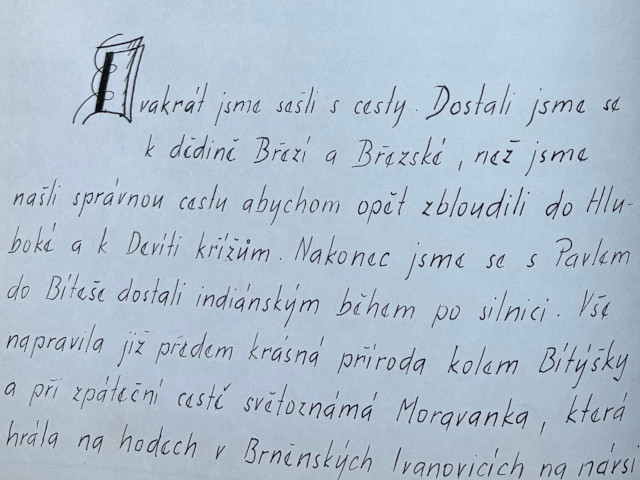 Dvakrát jsme sešli s cesty. Dostali jsme se
k dědině Březí a Březské, než jsme
našli správnou cestu abychom opět zbloudili do Hlu-
boké a k Devíti křížům. Nakonec jsme se s Pavlem
do Bíteše dostali indiánským během po silnici. Vše
napravila již předem krásná příroda kolem Bítýšky
a při zpáteční cestě světoznámá Moravanka, která
hrála na hodech v Brněnských Ivanovicích na návsi